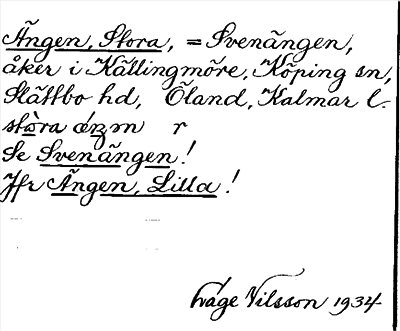 Ängen, Stora, = Svenängen,
åker i Källingmöre, Köping sn,
Slättbo hd, Öland, Kalmar l.
stòra r
Se Svenängen!
Jfr Ängen, Lilla!
Nilsson 1934